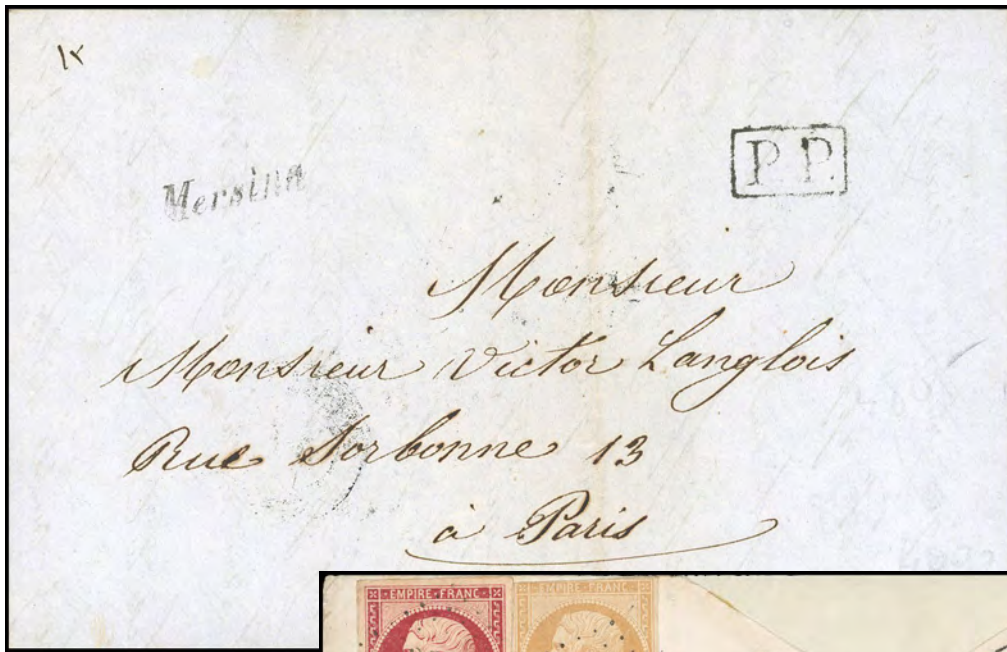 Mersina
P.P.
Monsieur
Monsieur Victor Langlois
Rue Sorbonne 13
à Paris
EMPIRE · FRANC · EMPIRE · FRANC ·